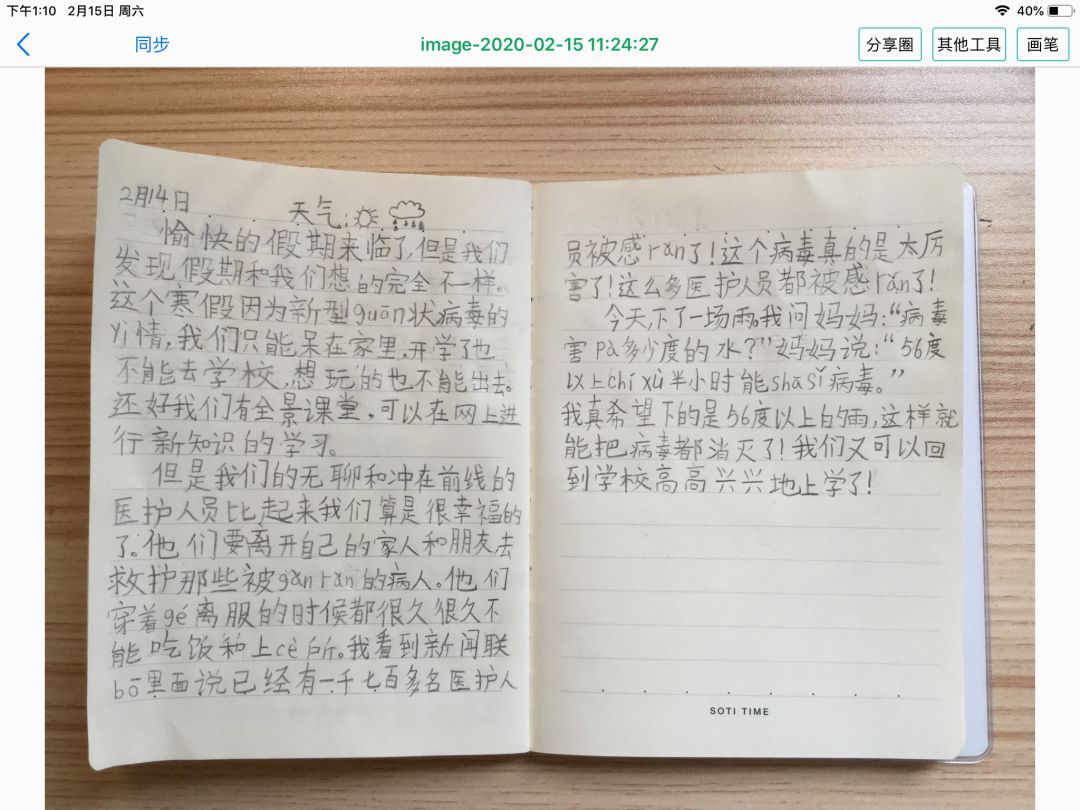 下午1:10 2月15日 周六
40%
同步
image-2020-02-15 11:24:27
分享圈
其他工具
画笔
2月14日
天气:
愉快的假期来临了,但是我们
发现假期和我们想的完全不一样。
这个寒假因为新型guān状病毒的
yì情,我们只能呆在家里,开学了也
不能去学校,想玩的也不能出去。
还好我们有全景课堂,可以在网上进
行新知识的学习。
但是我们的无聊和冲在前线的
医护人员比起来我们算是很幸福的
了。他们要离开自己的家人和朋友去
救护那些被gǎn rǎn的病人。他们
穿着gé离服的时候都很久很久不
能吃饭和上cè所。我看到新闻联
bō里面说已经有一千七百多名医护人
员被感rǎn了!这个病毒真的是太厉
害了!这么多医护人员都被感rǎn了!
今天,下了一场雨。我问妈妈:“病毒
害pà多少度的水?”妈妈说:“56度
以上chí xù半小时能shā sǐ病毒。”
我真希望下的是56度以上的雨,这样就
能把病毒都消灭了!我们又可以回
到学校高高兴兴地上学了!
SOTI TIME